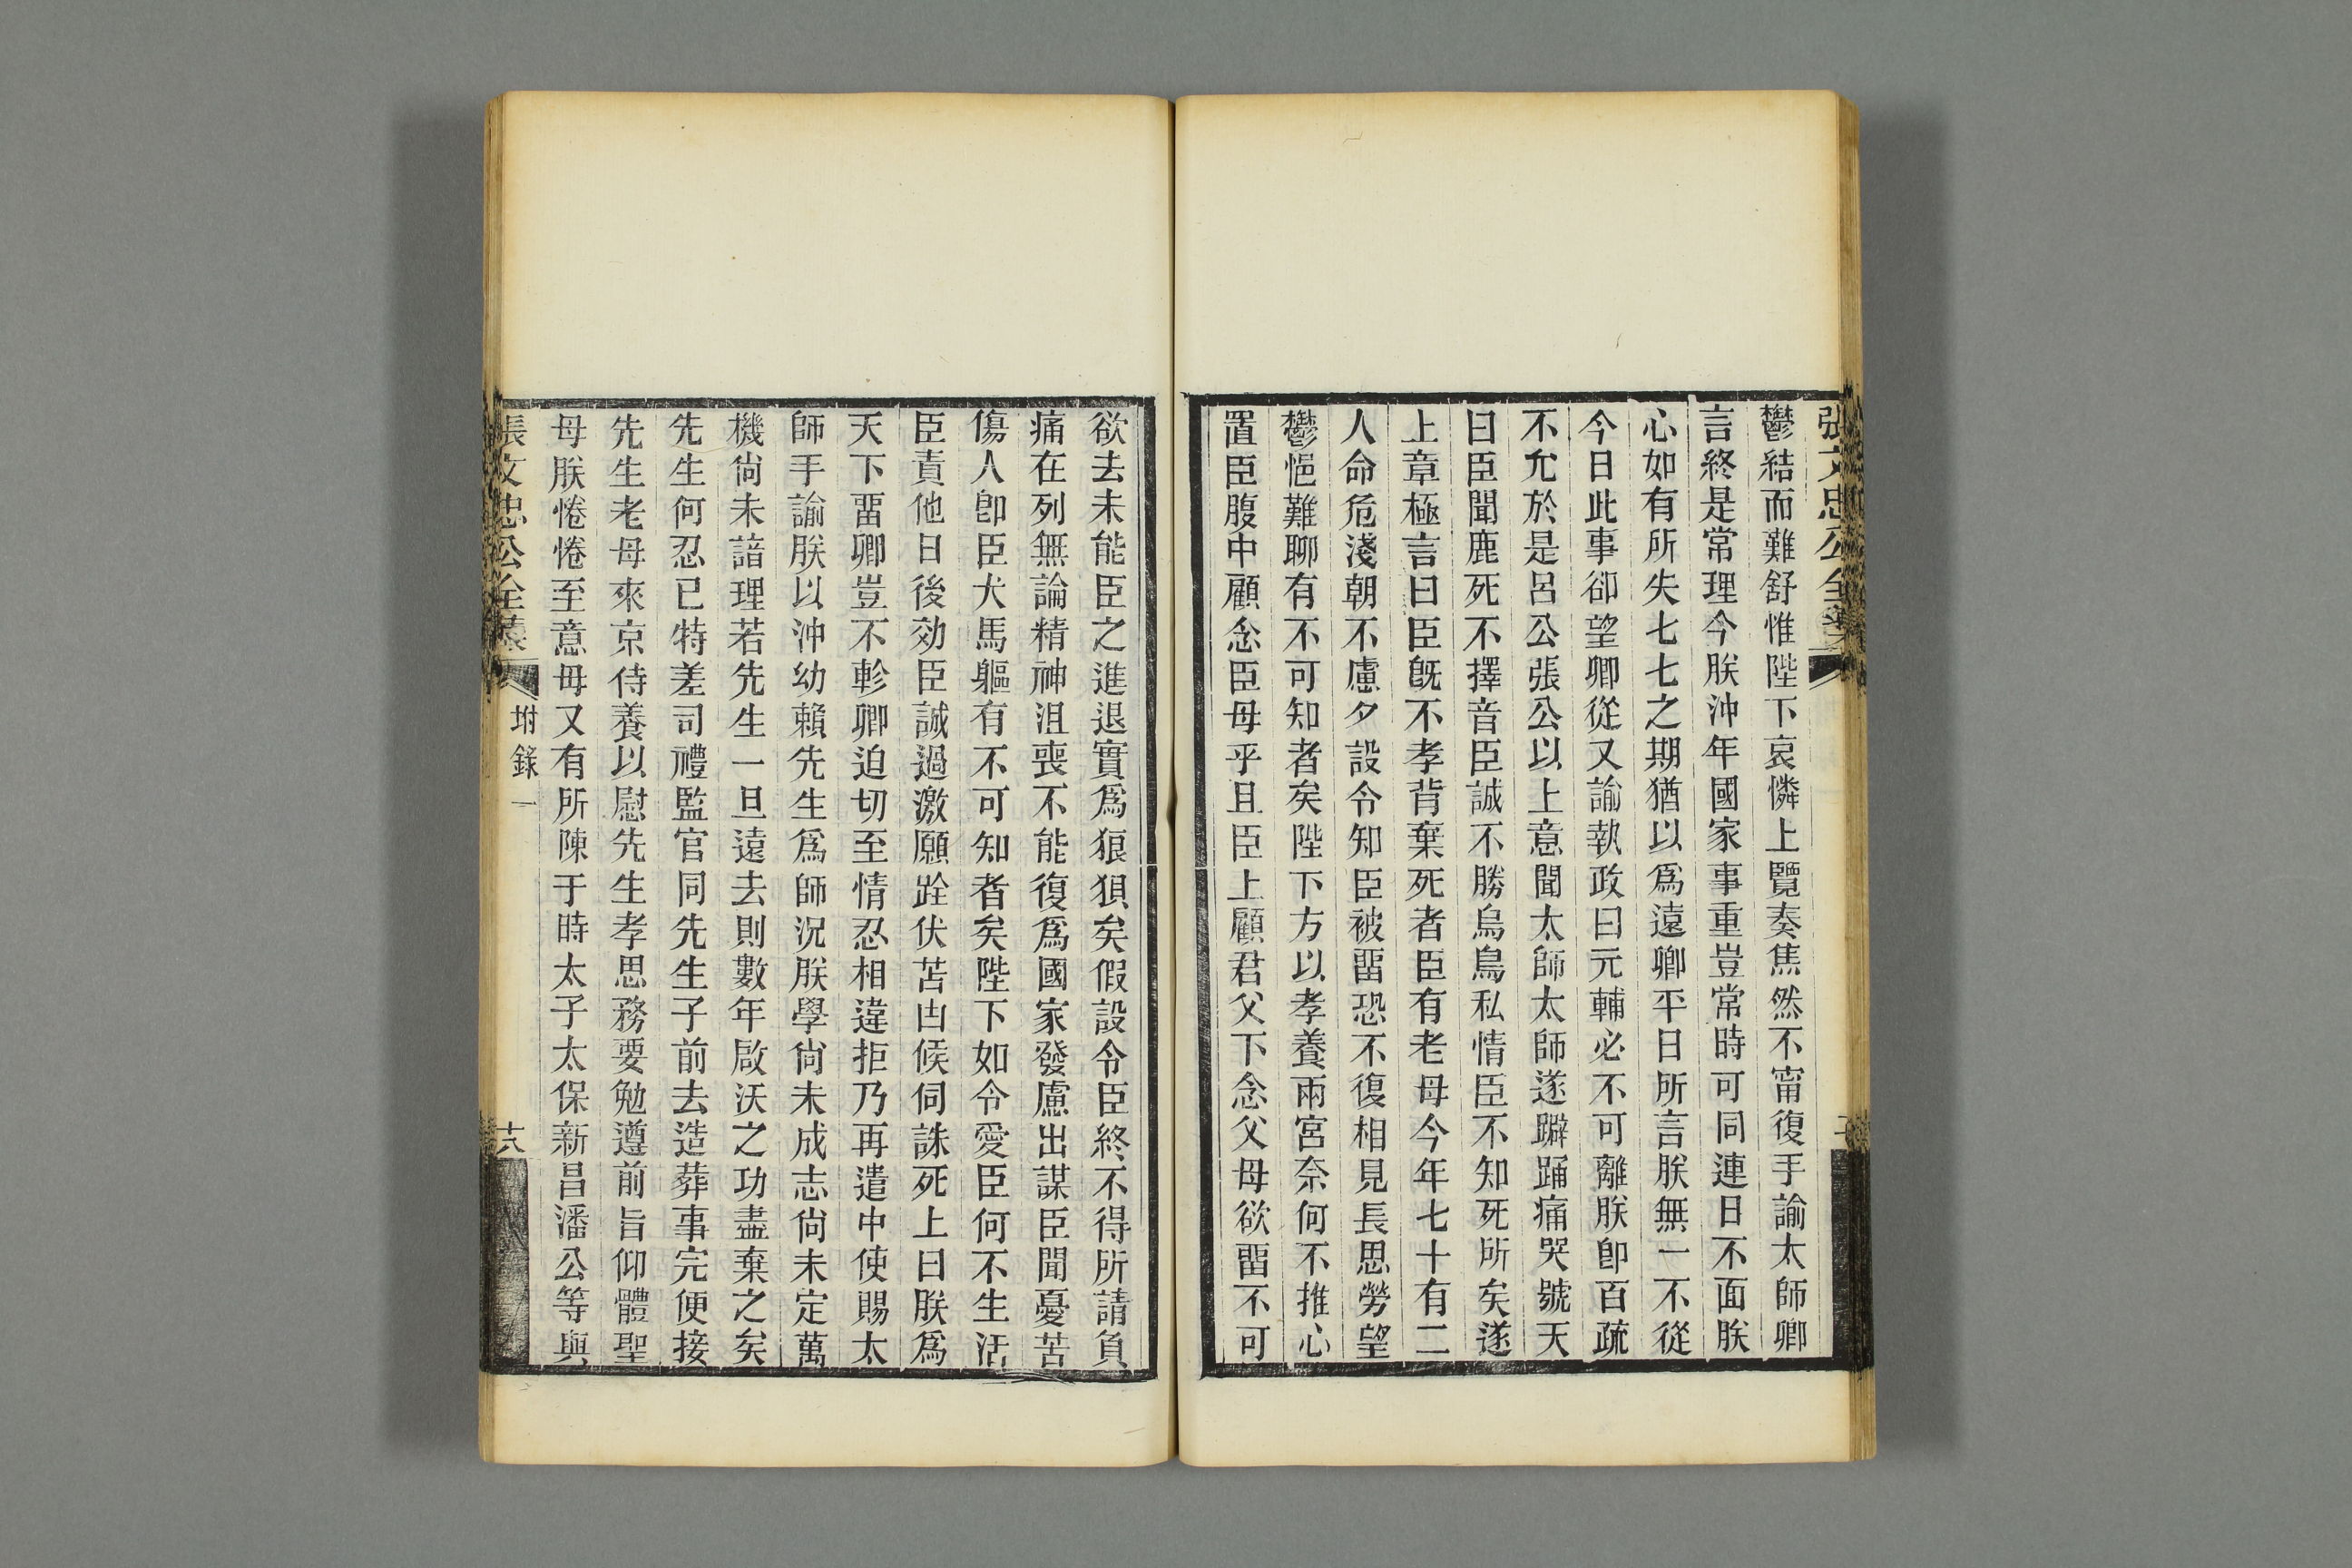 張文忠公全集
鬱結而難舒惟陛下哀憐上覽奏焦然不甯復手諭太師卿
言終是常理今朕沖年國家事重豈常時可同連日不面朕
心如有所失七七之期猶以爲遠卿平日所言朕無一不從
今日此事卻望卿從又諭執政曰元輔必不可離朕卽百疏
不允於是呂公張公以上意聞太師太師遂躃踊痛哭號天
曰臣聞鹿死不擇音臣誠不勝烏鳥私情臣不知死所矣遂
上章極言曰臣旣不孝背棄死者臣有老母今年七十有二
人命危淺朝不慮夕設令知臣被畱恐不復相見長思勞望
鬱悒難聊有不可知者矣陛下方以孝養兩宮奈何不推心
置臣腹中顧念臣母乎且臣上顧君父下念父母欲畱不可
欲去未能臣之進退實爲狼狽矣假設令臣終不得所請負
痛在列無論精神沮喪不能復爲國家發慮出謀臣聞憂苦
傷人卽臣犬馬軀有不可知者矣陛下如令愛臣何不生活
臣責他日後効臣誠過激願跧伏苫凷候伺誅死上曰朕爲
天下畱卿豈不軫卿迫切至情忍相違拒乃再遣中使賜太
師手諭朕以沖幼賴先生爲師況朕學尙未成志尙未定萬
機尙未諳理若先生一旦遠去則數年啟沃之功盡棄之矣
先生何忍已特差司禮監官同先生子前去造葬事完便接
先生老母來京侍養以慰先生孝思務要勉遵前旨仰體聖
母朕惓惓至意毋又有所陳于時太子太保新昌潘公等與
張文忠公全集 坿錄一 十八